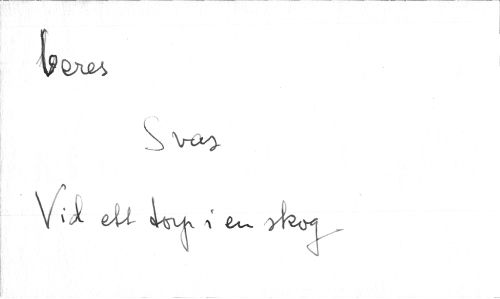 beres
Svas
Vid ett torp i en skog